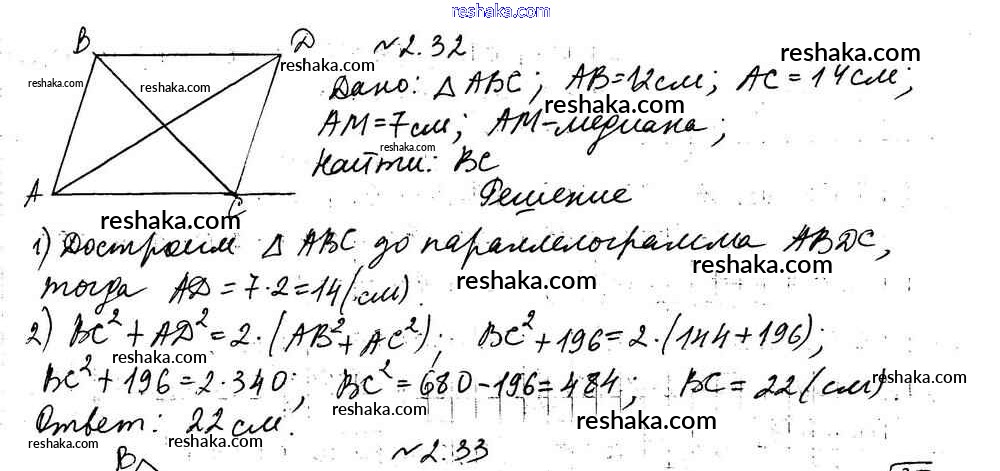 reshaka.com
B D №2.32
reshaka.com
reshaka.com reshaka.com reshaka.com
Дано: △ ABC; AB=12см; AC=14см;
reshaka.com
AM=7см; AM-медиана;
reshaka.com
Найти: BC
A C Решение
reshaka.com
1) Достроим △ ABC до параллелограмма ABDC,
reshaka.com
тогда AD=7·2=14(см).
reshaka.com
2) BC²+AD²=2·(AB²+AC²); BC²+196=2·(144+196);
reshaka.com reshaka.com
BC²+196=2·340; BC²=680-196=484; BC=22(см).
reshaka.com
reshaka.com
Ответ: 22см.
reshaka.com reshaka.com
B №2.33